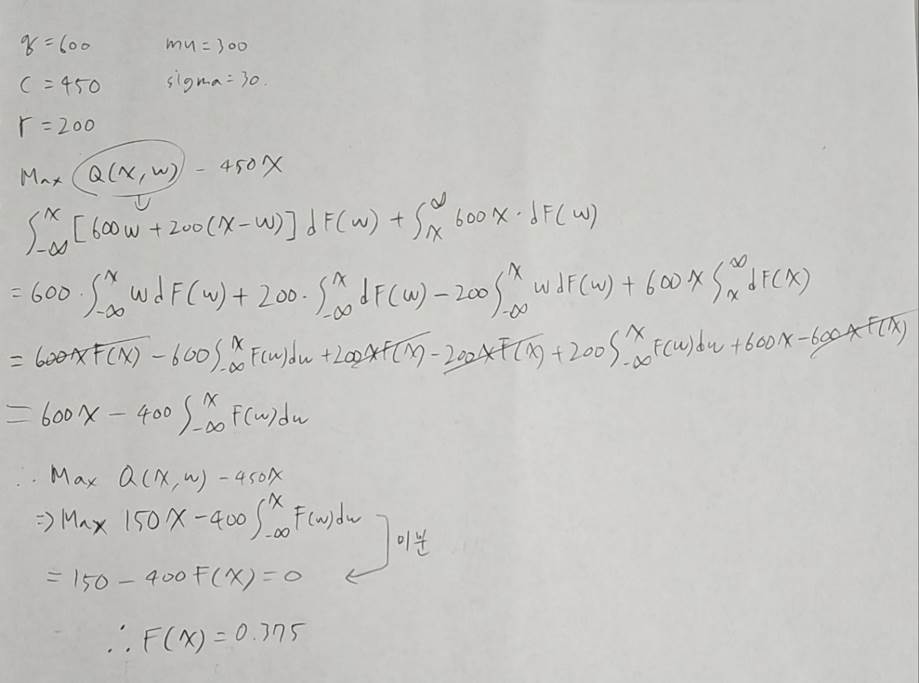 q=600 mu=300
c=450 sigma=30.
r=200
Max Q(x,w) - 450x
∫_{-∞}^{x} [600w+200(x-w)] dF(w) + ∫_{x}^{∞} 600x·dF(w)
= 600·∫_{-∞}^{x} wdF(w) + 200·∫_{-∞}^{x} dF(w) - 200∫_{-∞}^{x} wdF(w) + 600x∫_{x}^{∞} dF(x)
= 600xF(x) - 600∫_{-∞}^{x} F(w)dw + 200xF(x) - 200xF(x) + 200∫_{-∞}^{x} F(w)dw + 600x - 600xF(x)
= 600x - 400∫_{-∞}^{x} F(w)dw
∴ Max Q(x,w) - 450x
⇒ Max 150x - 400∫_{-∞}^{x} F(w)dw
미분
= 150 - 400F(x) = 0
∴ F(x) = 0.375